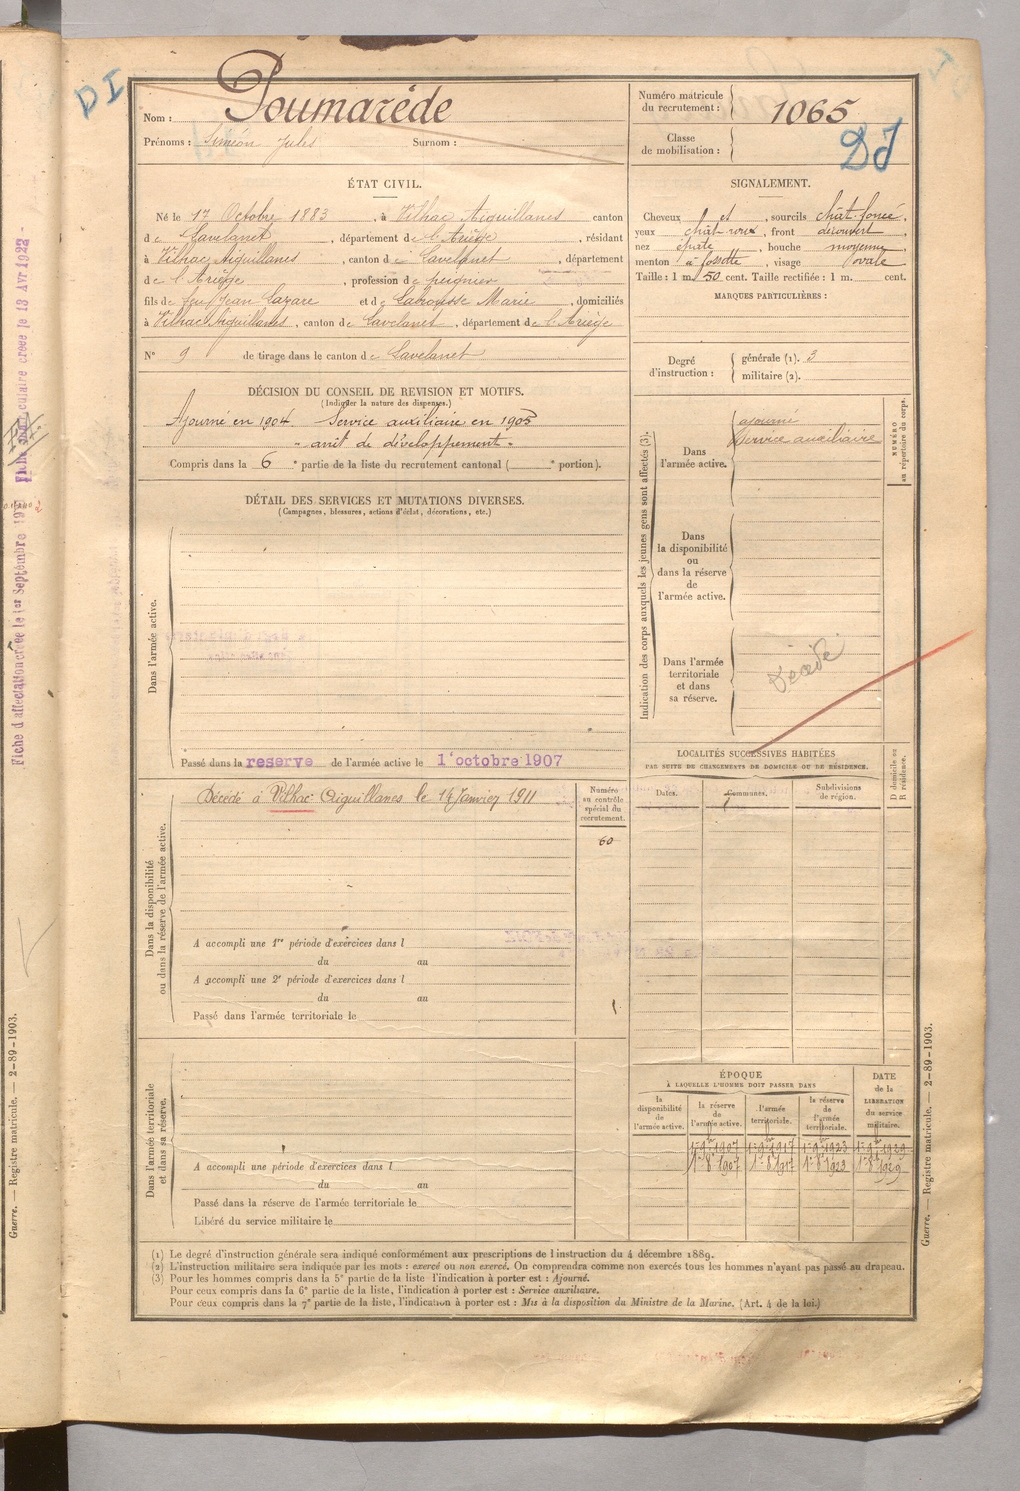 DI
Nom : Poumarède
Prénoms : Siméon Jules Surnom :
Numéro matricule du recrutement : 1065
Classe de mobilisation :
DI
ÉTAT CIVIL.
Né le 17 Octobre 1883, à Vilhac Aiguillanes canton
de Lavelanet, département de l'Ariège, résidant
à Vilhac Aiguillanes, canton de Lavelanet, département
de l'Ariège, profession de peignier
fils de feu Jean Lazare et de Laborisse Marie, domiciliés
à Vilhac Aiguillanes, canton de Lavelanet, département de l'Ariège
N° 9 de tirage dans le canton de Lavelanet
SIGNALEMENT.
Cheveux et, sourcils chât. foncé,
yeux chât roux, front découvert,
nez épaté, bouche moyenne,
menton à fossette, visage ovale
Taille : 1 m. 50 cent. Taille rectifiée : 1 m. cent.
MARQUES PARTICULIÈRES :
Degré d'instruction : générale (1). 3
militaire (2).
DÉCISION DU CONSEIL DE REVISION ET MOTIFS.
(Indiquer la nature des dispenses.)
Ajourné en 1904. Service auxiliaire en 1905
" arrêt de développement "
Compris dans la 6e partie de la liste du recrutement cantonal ( e portion).
DÉTAIL DES SERVICES ET MUTATIONS DIVERSES.
(Campagnes, blessures, actions d'éclat, décorations, etc.)
Dans l'armée active.
Passé dans la reserve de l'armée active le 1er octobre 1907
Indication des corps auxquels les jeunes gens sont affectés (3).
Dans l'armée active.
ajourné
Service auxiliaire
NUMÉRO au répertoire du corps.
Dans la disponibilité ou dans la réserve de l'armée active.
Dans l'armée territoriale et dans sa réserve.
Décédé
LOCALITÉS SUCCESSIVES HABITÉES
PAR SUITE DE CHANGEMENTS DE DOMICILE OU DE RÉSIDENCE.
Dates. Communes. Subdivisions de région.
D domicile ou R résidence.
Dans la disponibilité ou dans la réserve de l'armée active.
Décédé à Vilhac Aiguillanes le 14 Janvier 1911
Numéro au contrôle spécial du recrutement.
60
A accompli une 1re période d'exercices dans l
du au
A accompli une 2e période d'exercices dans l
du au
Passé dans l'armée territoriale le
Dans l'armée territoriale et dans sa réserve.
A accompli une période d'exercices dans l
du au
Passé dans la réserve de l'armée territoriale le
Libéré du service militaire le
ÉPOQUE
À LAQUELLE L'HOMME DOIT PASSER DANS
la disponibilité de l'armée active.
la réserve de l'armée active.
l'armée territoriale.
la réserve de l'armée territoriale.
DATE de la LIBÉRATION du service militaire.
1er 9bre 1907 1er 9bre 1917 1er 9bre 1923 1er 9bre 1929
1er 8bre 1907 1er 8bre 1917 1er 8bre 1923 1er 8bre 1929
(1) Le degré d'instruction générale sera indiqué conformément aux prescriptions de l'instruction du 4 décembre 1889.
(2) L'instruction militaire sera indiquée par les mots : exercé ou non exercé. On comprendra comme non exercés tous les hommes n'ayant pas passé au drapeau.
(3) Pour les hommes compris dans la 5e partie de la liste l'indication à porter est : Ajourné.
Pour ceux compris dans la 6e partie de la liste, l'indication à porter est : Service auxiliaire.
Pour ceux compris dans la 7e partie de la liste, l'indication à porter est : Mis à la disposition du Ministre de la Marine. (Art. 4 de la loi.)
Guerre. — Registre matricule. — 2-89-1903.
Guerre. — Registre matricule. — 2-89-1903.
Fiche d'affectation créée le 1er Septembre
créée le 13 Avr 1922